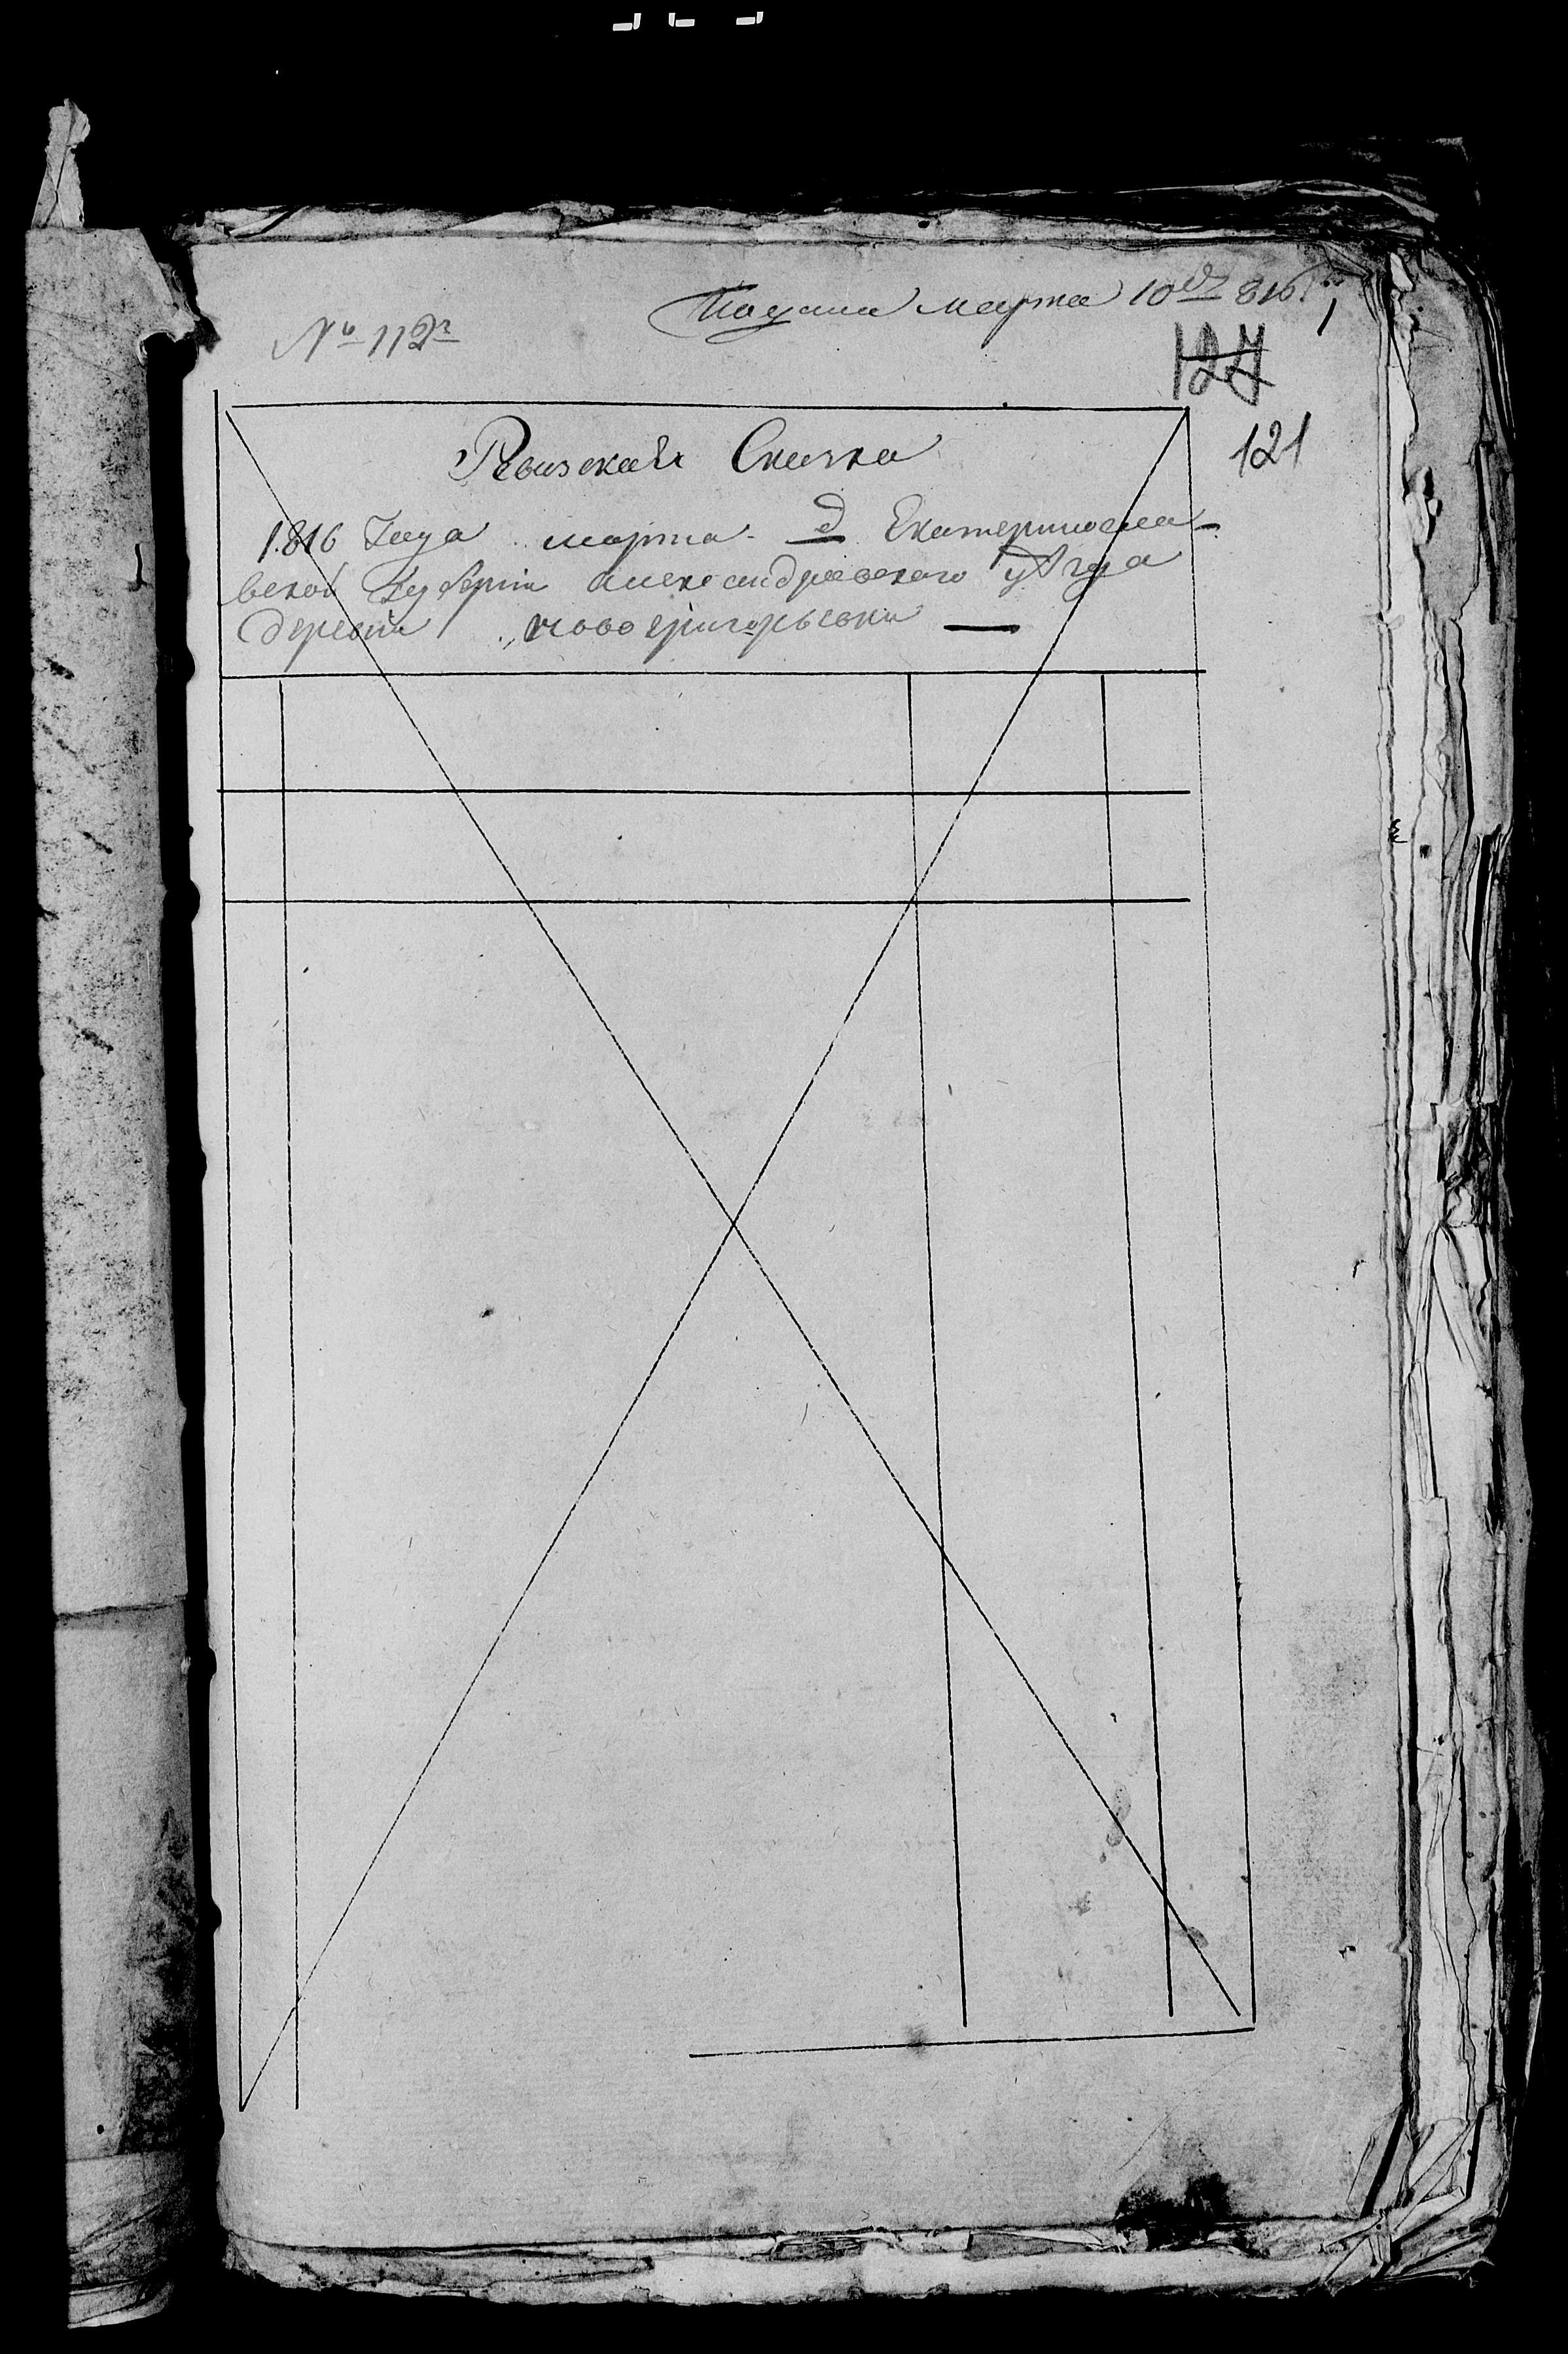 Подана марта 10го 816
№ 112й
127
121
Ревизская Сказка
1816 Года марта Екатеринosла-
вской Губернiи александровского уѣзда
деревни новогригорьевки